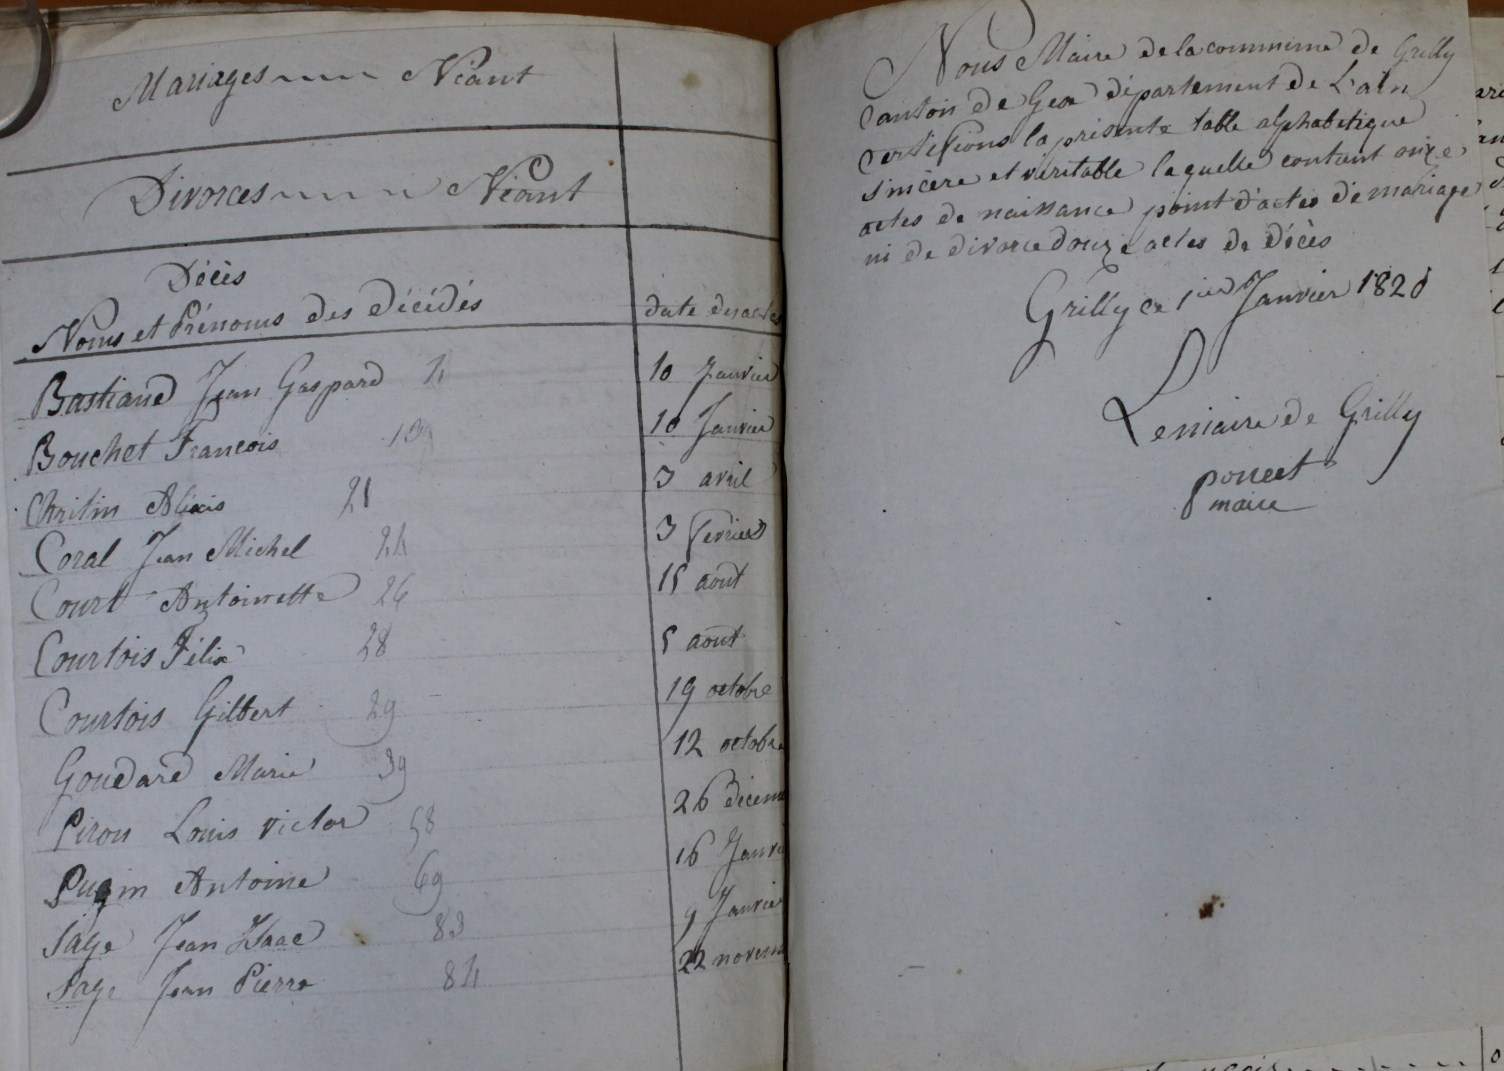 Mariages Néant
Divorces Néant
Décès
Noms et Prénoms des Décédés date des actes
Bastiand Jean Gaspard 11 10 Janvier
Bouchet Francois 10 Janvier
Chritin Alixis 21 3 avril
Coral Jean Michel 24 3 fevrier
Court Antoinette 26 15 aout
Courtois Félix 28 5 aout
Courtois Gilbert 29 19 octobre
Goudard Marie 39 12 octobre
Piron Louis victor 58 26 Décem
Pugin Antoine 69 16 Janvi
Sage Jean Isaac 83 9 Janvier
Sage Jean Pierre 84 22 novem
Nous Maire de la commune de Grilly
Canton de Gex département de L'ain
Certifions la présente table alphabetique
sincère et véritable laquelle contient onze
actes de naissance point d'actes de mariage
ni de divorce douze actes de décès
Grilly ce 1ier Janvier 1820
Le maire de Grilly
poncet
maire